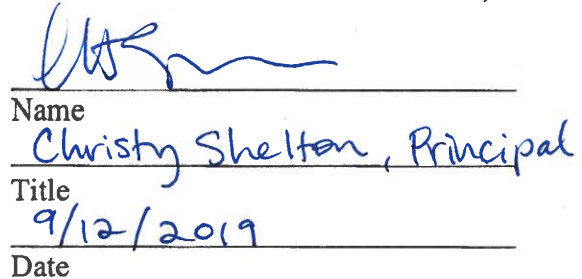 Name
Christy Shelton, Principal
Title
9/12/2019
Date